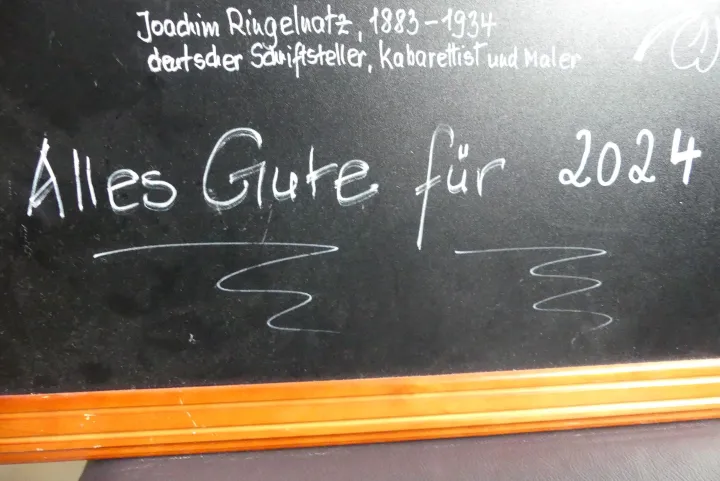 Joachim Ringelnatz, 1883-1934
deutscher Schriftsteller, Kabarettist und Maler
Alles Gute für 2024